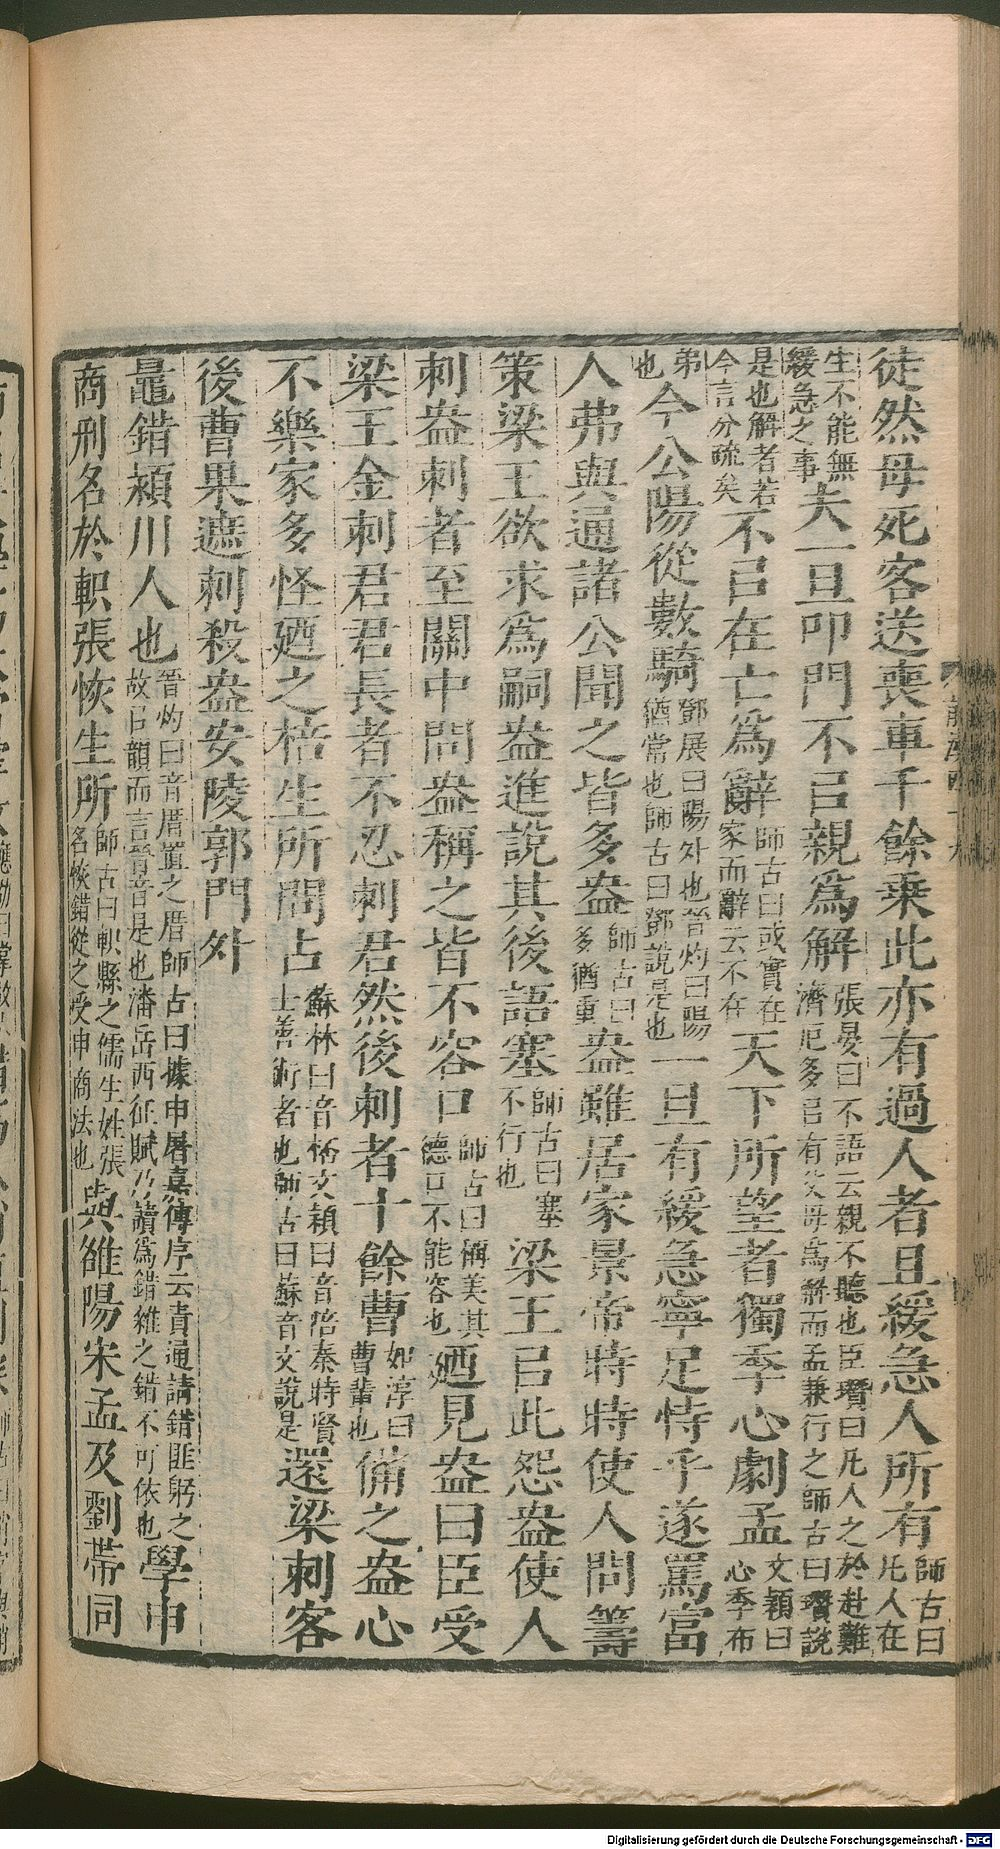 徒然母死客送喪車千餘乘此亦有過人者且緩急人所有師古曰凡人在
生不能無緩急之事夫一旦叩門不㠯親爲解張晏曰不語云親不聽也臣瓚曰凡人之於赴難濟厄多㠯有父母爲解而孟兼行之師古曰瓚說
是也解者若今言分疏矣不㠯在亡爲辭師古曰或實在家而辭云不在天下所望者獨季心劇孟文穎曰心季布
弟也今公陽從數騎鄧展曰陽外也晉灼曰陽猶常也師古曰鄧說是也一旦有緩急寧足恃乎遂罵富
人弗與通諸公聞之皆多盎師古曰多猶重盎雖居家景帝時時使人問籌
策梁王欲求爲嗣盎進說其後語塞師古曰塞不行也梁王㠯此怨盎使人
刺盎刺者至關中問盎稱之皆不容口師古曰稱美其德口不能容也廼見盎曰臣受
梁王金刺君君長者不忍刺君然後刺者十餘曹如淳曰曹輩也備之盎心
不樂家多怪廼之棓生所問占蘇林曰音栝文穎曰音陪秦時賢士善術者也師古曰蘇音文說是還梁刺客
後曹果遮刺殺盎安陵郭門外
鼂錯潁川人也晉灼曰音厝置之厝師古曰據申屠嘉傳序云責通請錯匪躬之故㠯韻而言晉音是也潘岳西征賦乃讀爲錯雜之錯不可依也學申
商刑名於軹張恢生所師古曰軹縣之儒生姓張名恢錯從之受申商法也與雒陽宋孟及劉帶同
Digitalisierung gefördert durch die Deutsche Forschungsgemeinschaft - DFG